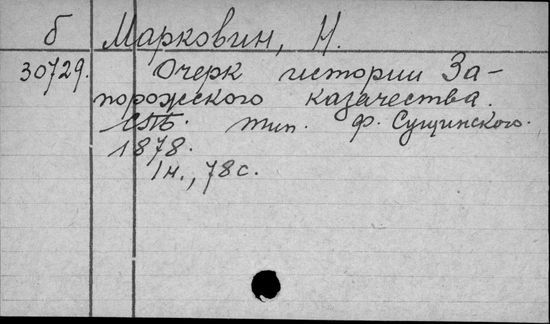 б Марковин, Н.
30729. Очерк истории За-
порожского казачества.
СПБ. тип. Ф. Сущинского.
1878.
1н., 78 с.